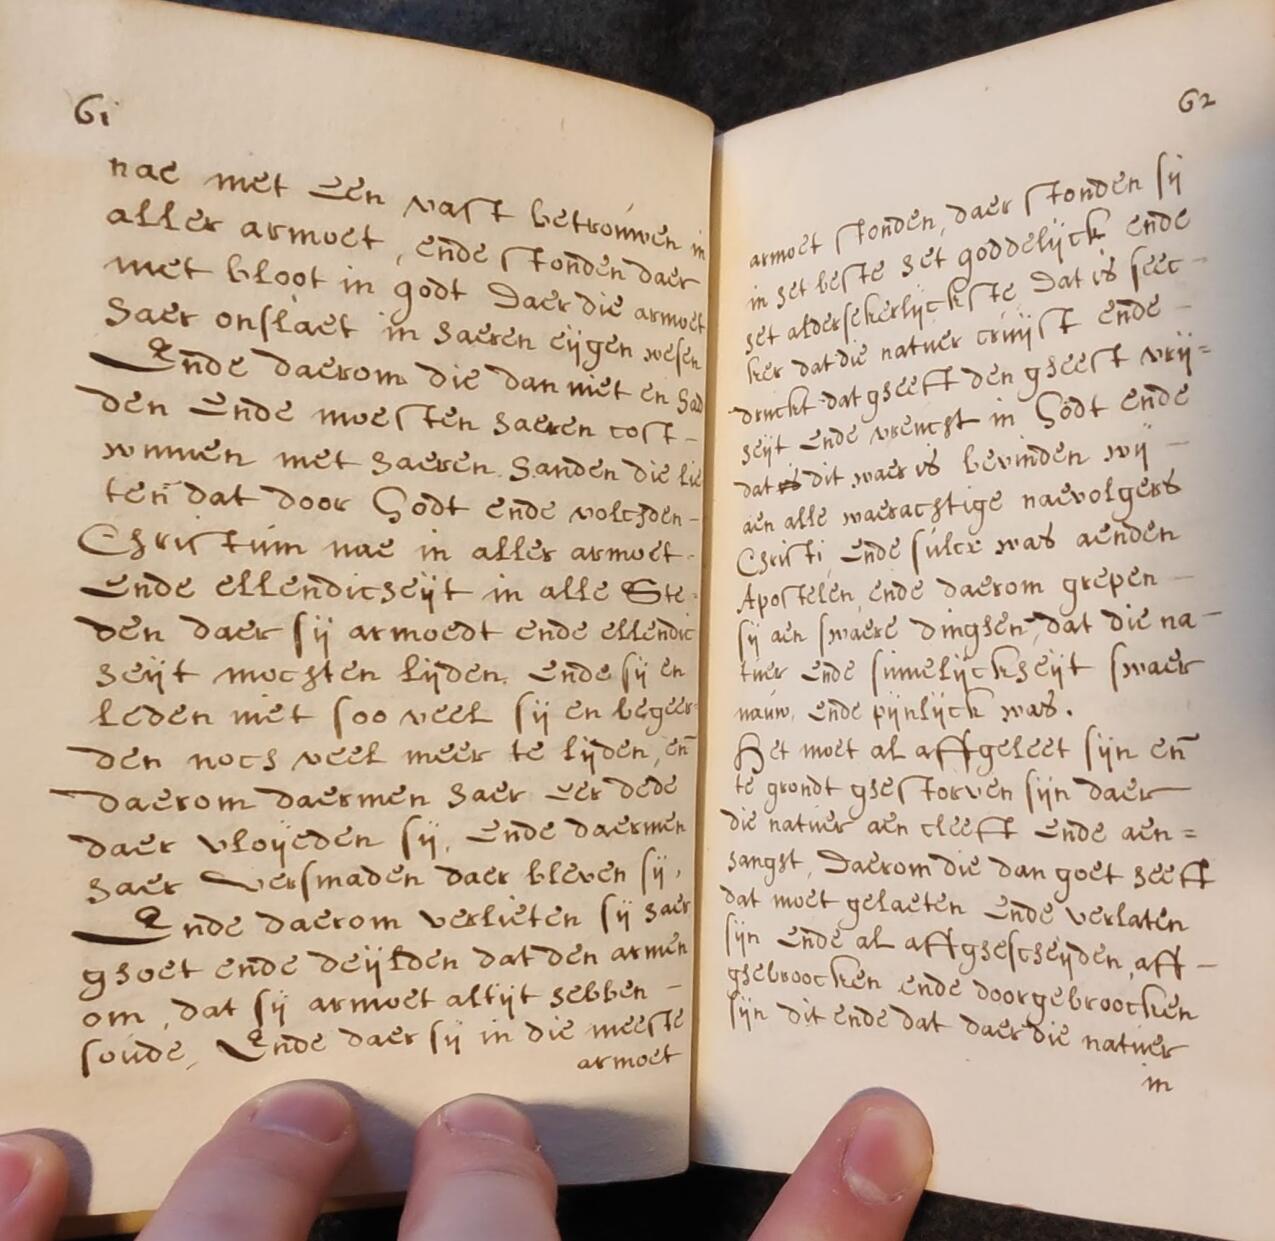 61
nae met Een vast betrouwen in
aller armoet, ende stonden daer
met bloot in godt Daer die armoet
haer onslaet in haeren eijgen wesen
Ende daerom die dan niet en had
den Ende moesten haeren cost -
winnen met haeren handen die lie
ten dat door Godt ende volchden -
Christum nae in aller armoet -
Ende ellendicheijt in alle Ste-
den daer sij armoedt ende ellendic
heijt mochten lijden. Ende sij en
leden niet soo veel sij en begeer-
den noch veel meer te lijden, en̄
daerom daermen haer Eer dede
daer vloijeden sij, Ende daermen
haer versmaden daer bleven sij,
Ende daerom verlieten sij haer
ghoet ende deijlden dat den armen
om, dat sij armoet altijt hebben -
soude, Ende daer sij in die meeste
armoet
62
armoet stonden, daer stonden sij
in het beste het goddelijck ende
het aldersekerlijckste, Dat is seec -
ker dat die natuer cruijst ende -
druckt dat gheeft den gheest vrij=
heijt Ende vreucht in Godt Ende
dat is dit waer is bevinden wij -
aen alle waerachtige naevolgers
Christi, Ende sulcx was aenden
Apostelen, ende daerom grepen -
sij aen swaere dinghen, dat die na-
tuer Ende sinnelijckheijt swaer
nauw, Ende pijnlijck was.
Het moet al affgeleet sijn en̄
te grondt ghestorven sijn daer
die natuer aen cleeft Ende aen=
hangt, Daerom die dan goet heeft
dat moet gelaeten Ende verlaten
sijn Ende al affghescheijden, aff -
ghebroocken ende doorgebroocken
sijn dit ende dat daer die natuer
in